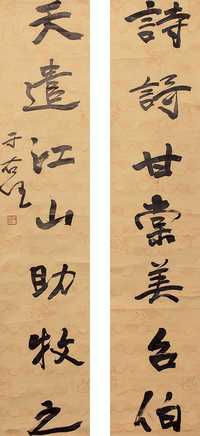 詩謌甘棠美召伯
天遣江山助牧之
于右任